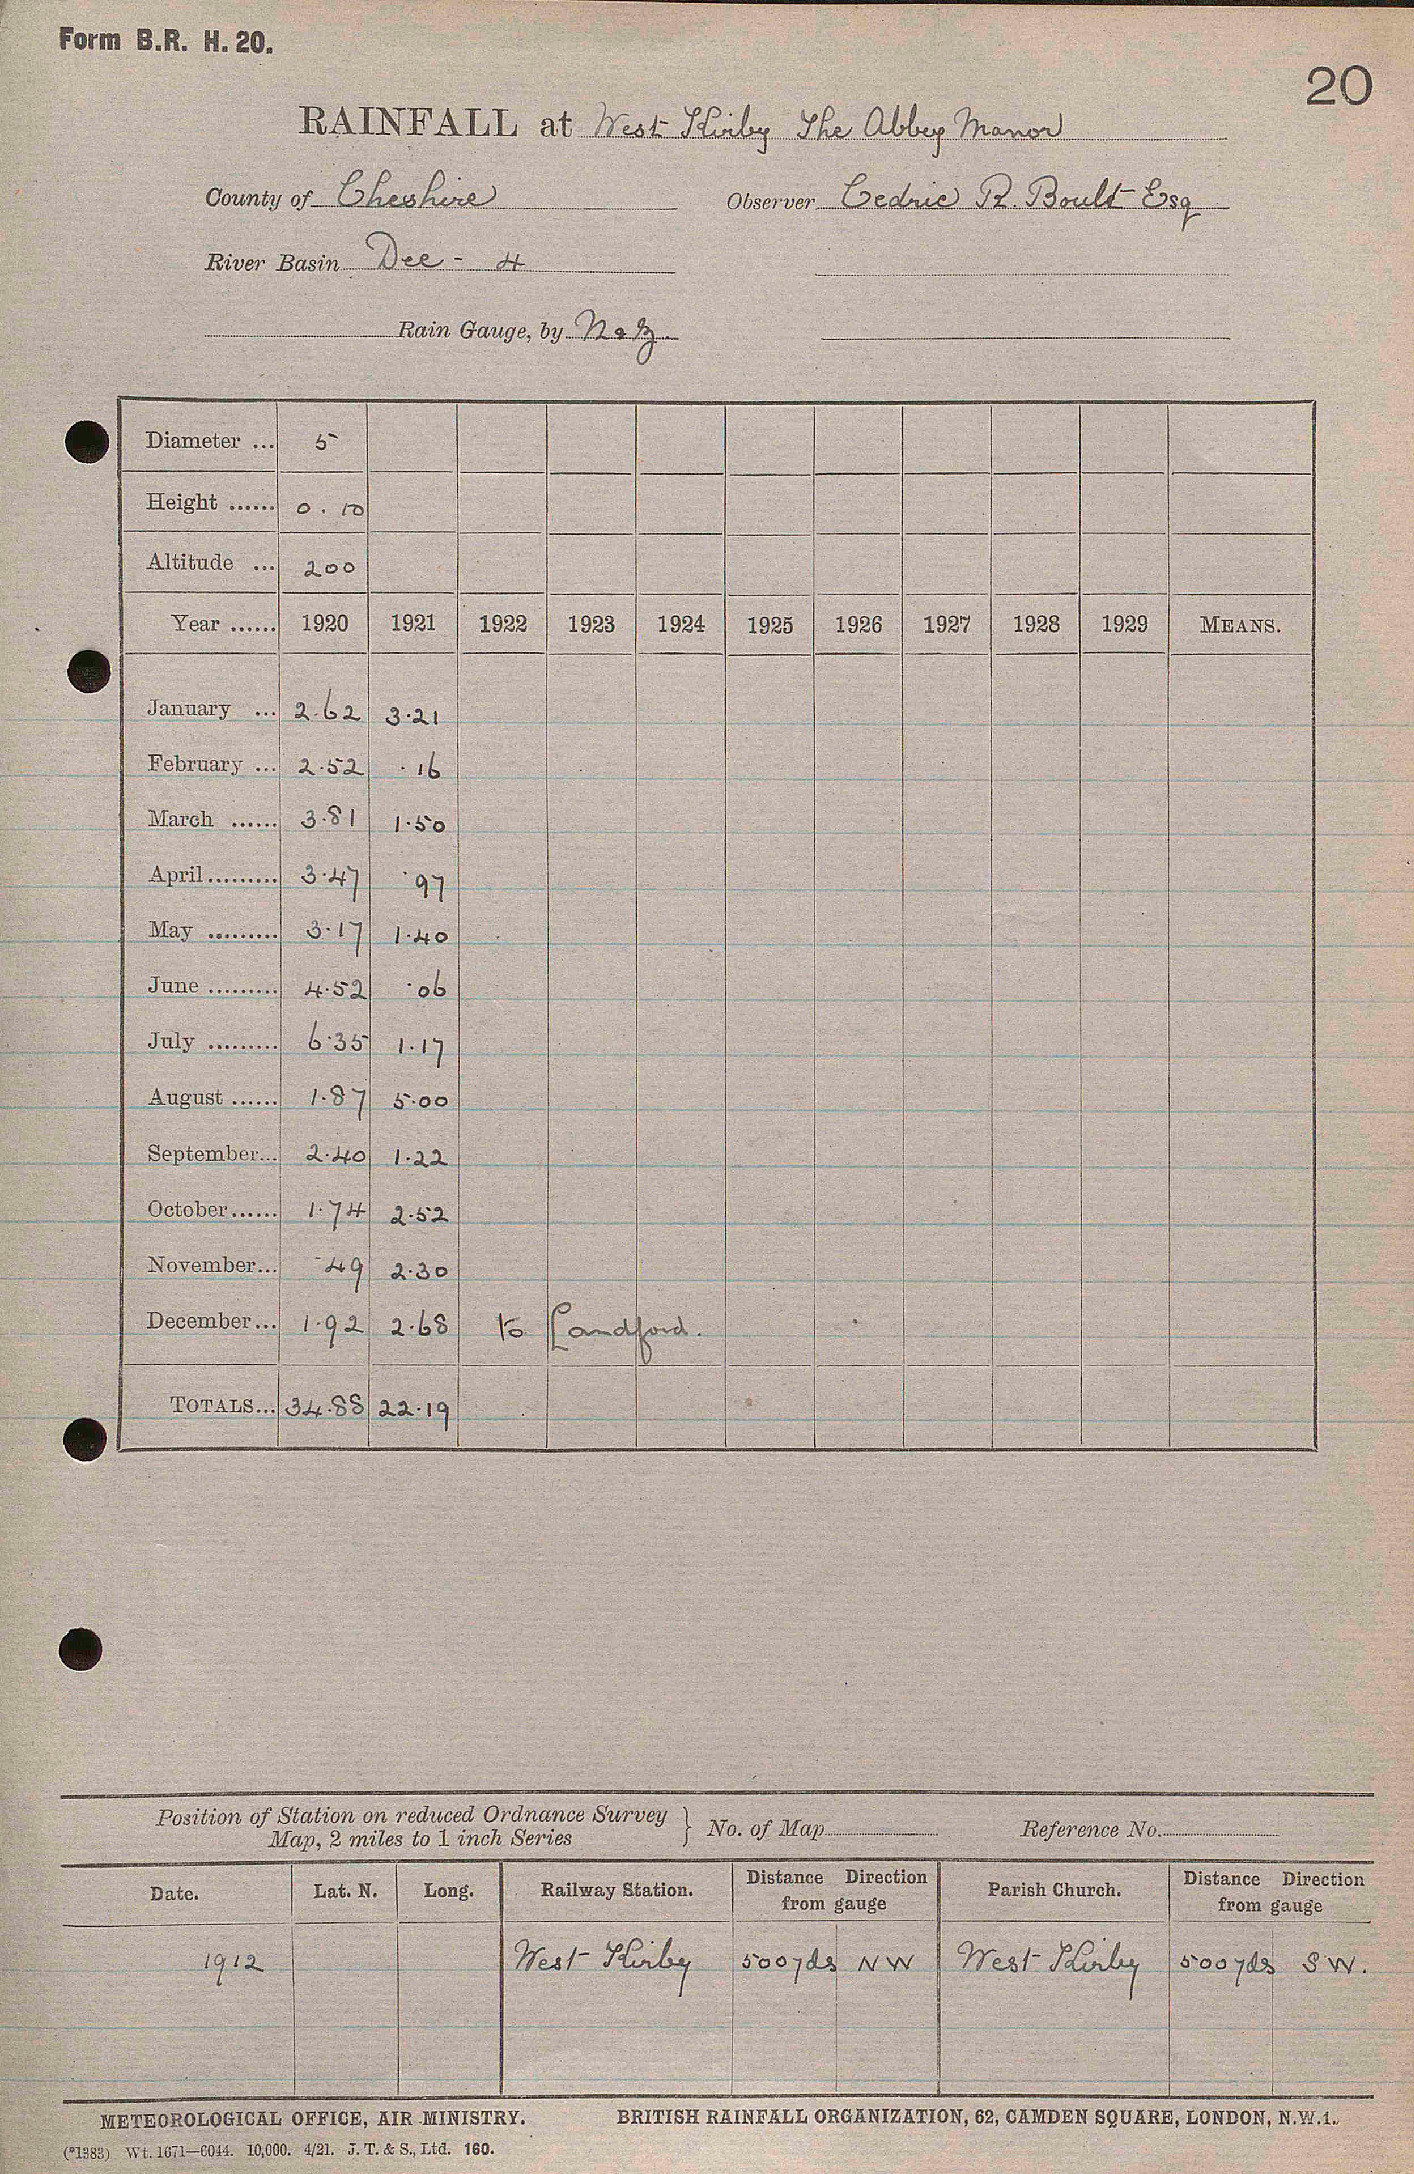 Form B.R. H. 20.
20
RAINFALL at West Kirby The Abbey Manor
County of Cheshire Observer Cedric R. Boult Esq
River Basin Dee - 4
Rain Gauge, by N & Z.
Diameter ... 5
Height ...... 0. 10
Altitude ... 200
Year ...... 1920 1921 1922 1923 1924 1925 1926 1927 1928 1929 MEANS.
January ... 2.62 3.21
February ... 2.52 .16
March ...... 3.81 1.50
April......... 3.47 .97
May ......... 3.17 1.40
June ......... 4.52 .06
July ......... 6.35 1.17
August ...... 1.87 5.00
September... 2.40 1.22
October...... 1.74 2.52
November... .49 2.30
December... 1.92 2.68 to Landford.
TOTALS... 34.88 22.19
Position of Station on reduced Ordnance Survey } No. of Map Reference No.
Map, 2 miles to 1 inch Series
Date. Lat. N. Long. Railway Station. Distance Direction from gauge Parish Church. Distance Direction from gauge
1912 West Kirby 500 yds N W West Kirby 500 yds S W.
METEOROLOGICAL OFFICE, AIR MINISTRY. BRITISH RAINFALL ORGANIZATION, 62, CAMDEN SQUARE, LONDON, N.W.1.
(*1383) Wt. 1671—6044. 10,000. 4/21. J. T. & S., Ltd. 160.